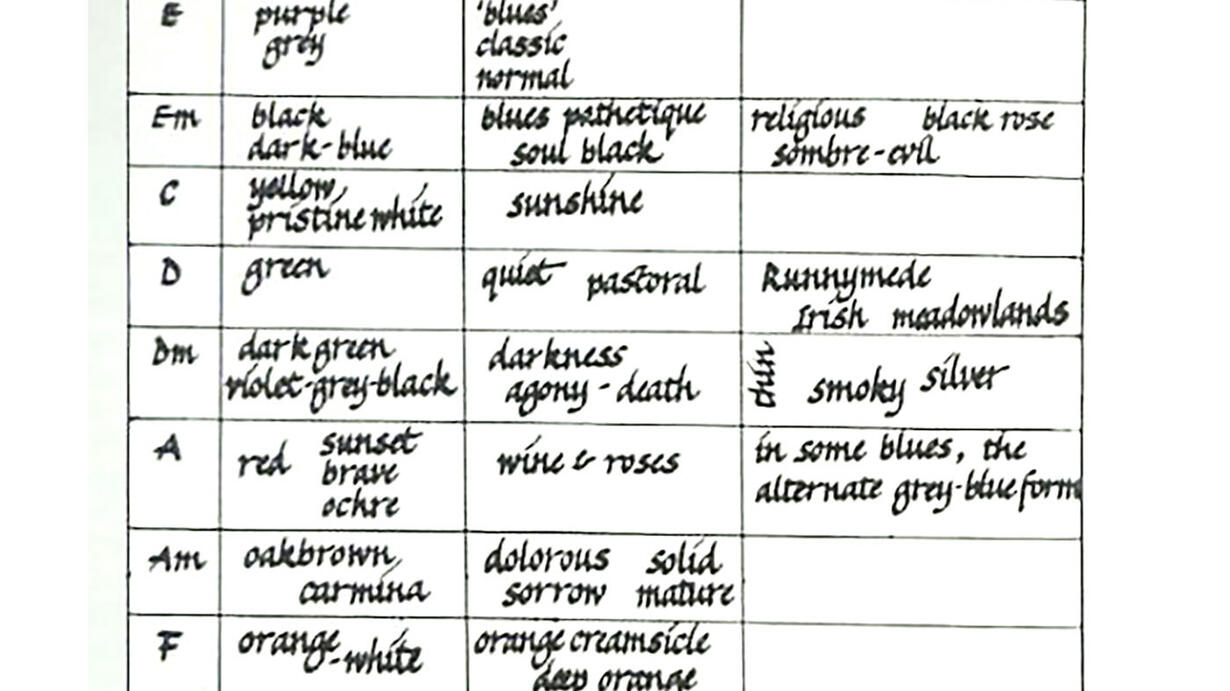 E purple 'blues'
grey classic
normal
Em black blues pathetique religious black rose
dark-blue soul black sombre-evil
C yellow, sunshine
pristine white
D green quiet pastoral Runnymede
Irish meadowlands
Dm dark green darkness thin smoky silver
violet-grey-black agony-death
A red sunset wine & roses in some blues, the
brave alternate grey-blue form
ochre
Am oakbrown, dolorous solid
carmina sorrow mature
F orange-white orange creamsicle
deep orange